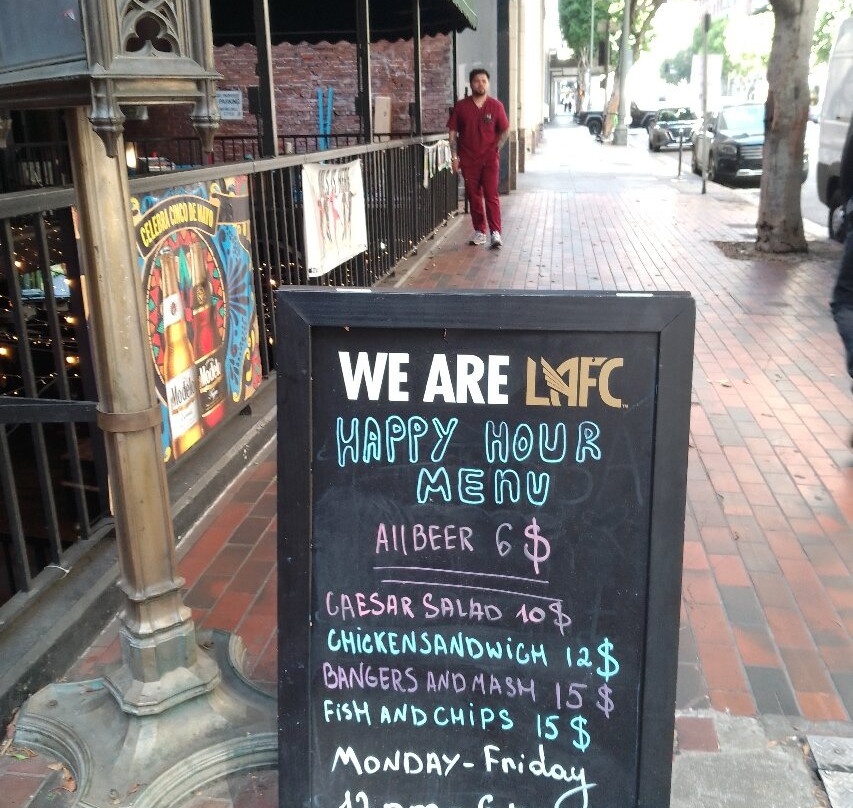 PARKING
CELEBRA CINCO DE MAYO
Modelo
Modelo
WE ARE LAFC
HAPPY HOUR
MENU
All BEER 6$
CAESAR SALAD 10$
CHICKEN SANDWICH 12$
BANGERS AND MASH 15$
FISH AND CHIPS 15$
MONDAY-Friday